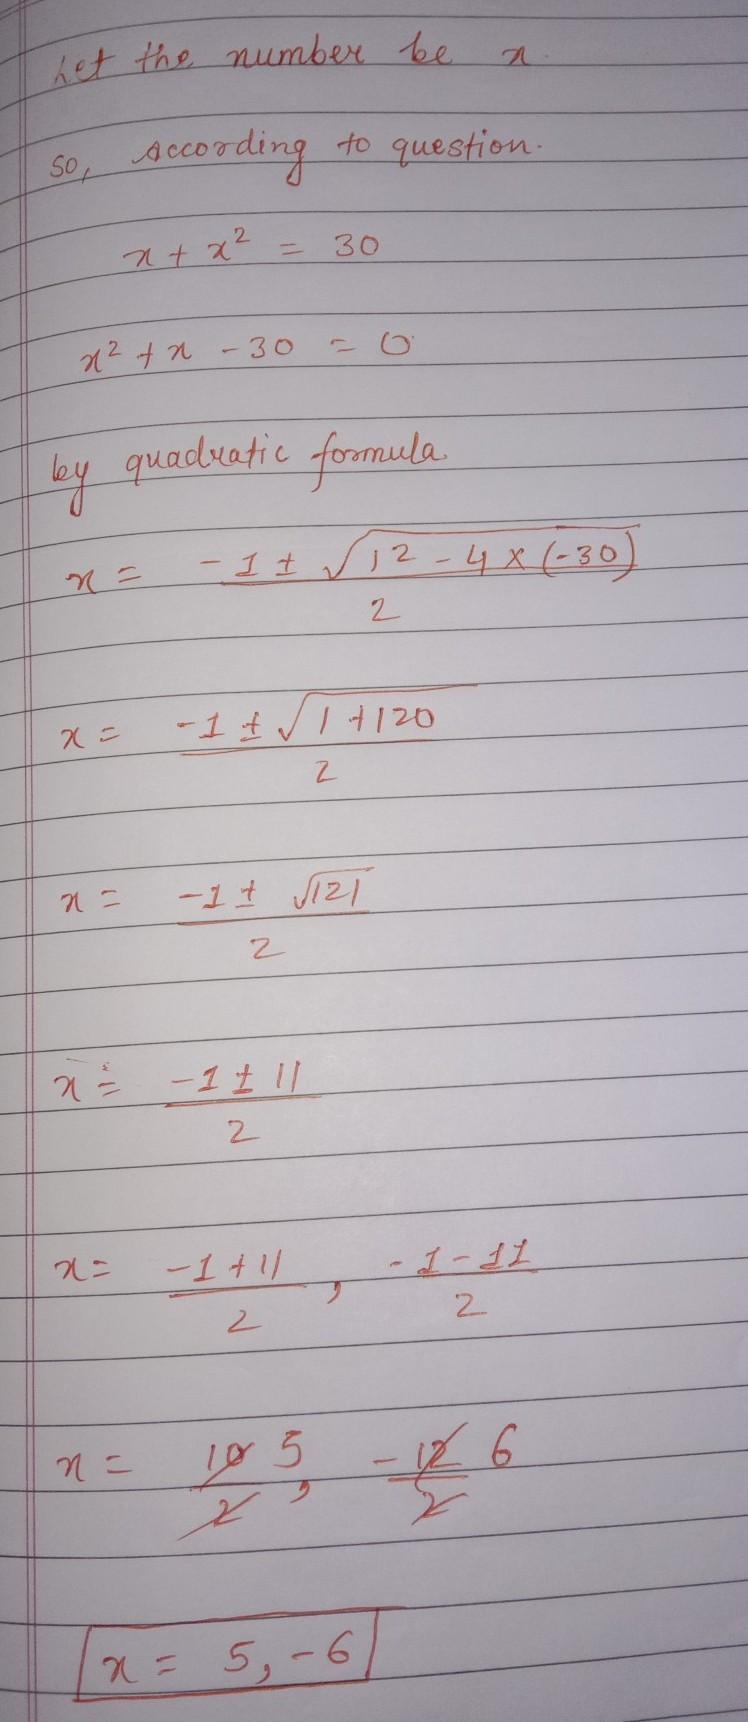 Let the number be x.
So, According to question.
x + x² = 30
x² + x - 30 = 0
by quadratic formula.
x = -1 ± √12 - 4 × (-30)
2
x = -1 ± √1 + 120
2
x = -1 ± √121
2
x = -1 ± 11
2
x = -1 + 11 , -1 - 11
2 2
x = 10 5 , -12 6
2 2
x = 5, -6